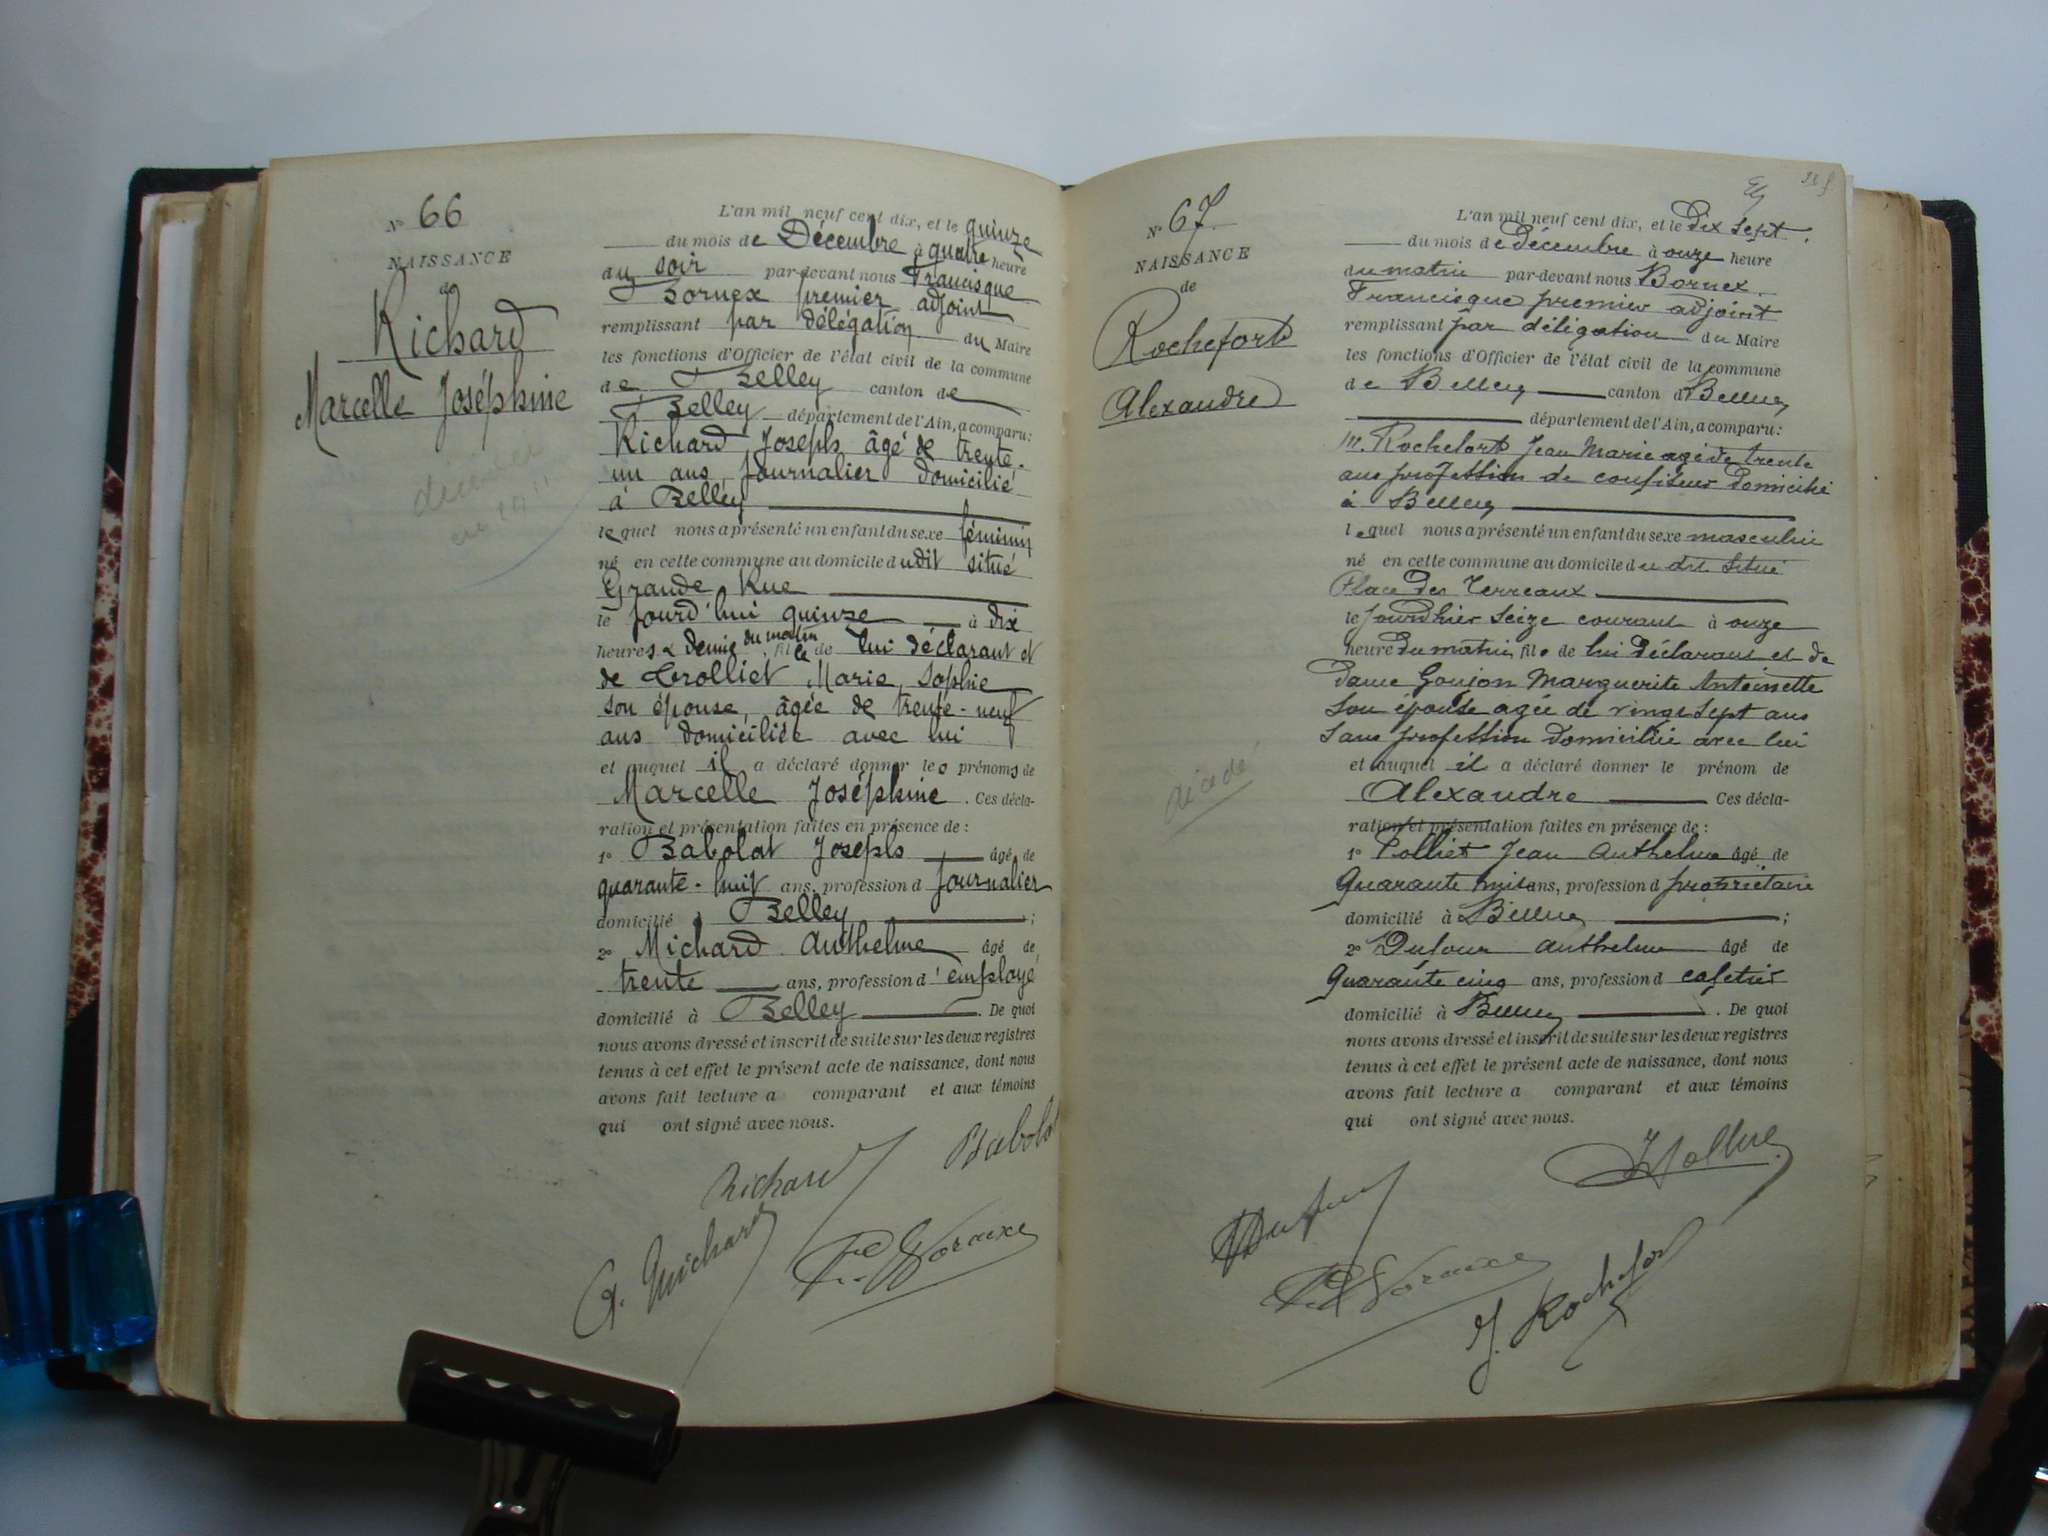 N° 66
NAISSANCE
de
Richard
Marcelle Joséphine
décédée
en 19
L'an mil neuf cent dix, et le quinze
du mois de Décembre à quatre heure
du soir par-devant nous Francisque
Bornex premier adjoint
remplissant par délégation du Maire
les fonctions d'Officier de l'état civil de la commune
de Belley canton de
Belley département de l'Ain, a comparu:
Richard Joseph âgé de trente-
un ans journalier domicilié
à Belley
lequel nous a présenté un enfant du sexe féminin
né en cette commune au domicile dudit situé
Grande Rue
le jourd'hui quinze à dix
heures & demie du matin fille de lui déclarant et
de Trolliet Marie Sophie
son épouse, âgée de trente-neuf
ans domiciliée avec lui
et auquel il a déclaré donner les prénoms de
Marcelle Joséphine. Ces décla-
ration et présentation faites en présence de :
1° Babolat Joseph âgé de
quarante-huit ans, profession d journalier
domicilié à Belley ;
2° Michard Anthelme âgé de
trente ans, profession d'employé
domicilié à Belley. De quoi
nous avons dressé et inscrit de suite sur les deux registres
tenus à cet effet le présent acte de naissance, dont nous
avons fait lecture a comparant et aux témoins
qui ont signé avec nous.
Richard Babolat
A. Michard
N° 67
NAISSANCE
de
Rochefort
Alexandre
décédé
L'an mil neuf cent dix, et le Dix Sept
du mois de Décembre à onze heure
du matin par-devant nous Bornex
Francisque premier adjoint
remplissant par délégation du Maire
les fonctions d'Officier de l'état civil de la commune
de Belley canton d Belley
département de l'Ain, a comparu:
M. Rochefort Jean Marie agé de trente
ans profession de confiseur Domicilié
à Belley
lequel nous a présenté un enfant du sexe masculin
né en cette commune au domicile du dit Situé
Place des Terreaux
le jourdhier Seize courant à onze
heure Du matin fils de lui Déclarant et de
Dame Goujon Marguerite Antoinette
Son épouse agée de vingt Sept ans
Sans profession Domiciliée avec lui
et auquel il a déclaré donner le prénom de
Alexandre Ces décla-
ration et présentation faites en présence de :
1° Polliet Jean Anthelme âgé de
Quarante huit ans, profession d propriétaire
domicilié à Belley ;
2° Dufour Anthelme âgé de
Quarante cinq ans, profession d cafetier
domicilié à Belley. De quoi
nous avons dressé et inscrit de suite sur les deux registres
tenus à cet effet le présent acte de naissance, dont nous
avons fait lecture a comparant et aux témoins
qui ont signé avec nous.
J. Rochefort